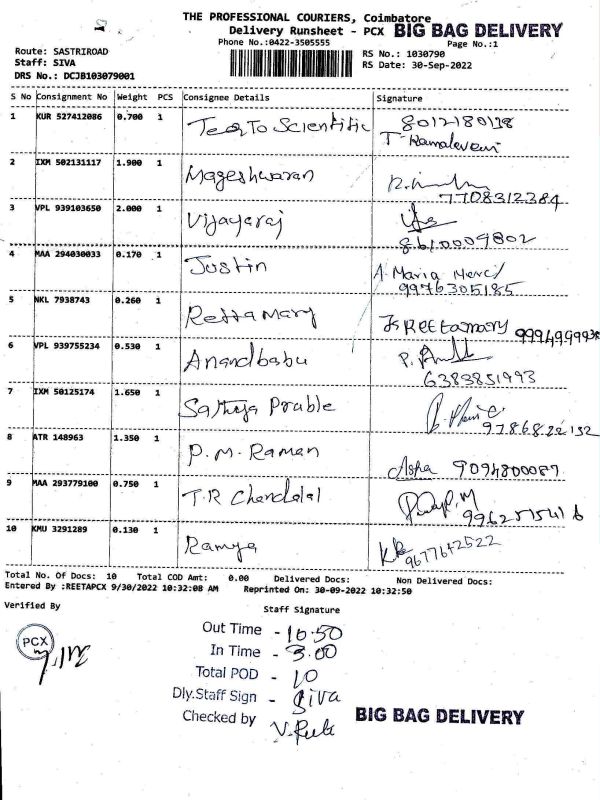 THE PROFESSIONAL COURIERS, Coimbatore
Delivery Runsheet - PCX BIG BAG DELIVERY
Phone No.:0422-3505555 Page No.:1
Route: SASTRIROAD RS No.: 1030790
Staff: SIVA RS Date: 30-Sep-2022
DRS No.: DCJB103079001
S No Consignment No Weight PCS Consignee Details Signature
1 KUR 527412086 0.700 1 Tear To Scientific 8012180118
T. Ramadevi
2 IXM 502131117 1.900 1 Mageshwaran
7708312384
3 VPL 939103650 2.000 1 Vijayaraj
8610009802
4 MAA 294030033 0.170 1 Justin A. Maria Mercy
9976305185
5 NKL 7938743 0.260 1 Retta Mary REETAMARY
6 VPL 939755234 0.530 1 Anandbabu
6383851993
7 IXM 50125174 1.650 1 Sathya Prable
9786822132
8 ATR 148963 1.350 1 P.M. Raman Asha 9094800087
9 MAA 293779100 0.750 1 T.R Chandalal
9962575416
10 KMU 3291289 0.130 1 Ramya
9677642522
Total No. Of Docs: 10 Total COD Amt: 0.00 Delivered Docs: Non Delivered Docs:
Entered By :REETAPCX 9/30/2022 10:32:08 AM Reprinted On: 30-09-2022 10:32:50
Verified By Staff Signature
PCX
Out Time - 10.50
In Time - 3.00
Total POD - 10
Dly.Staff Sign - Siva
Checked by
BIG BAG DELIVERY